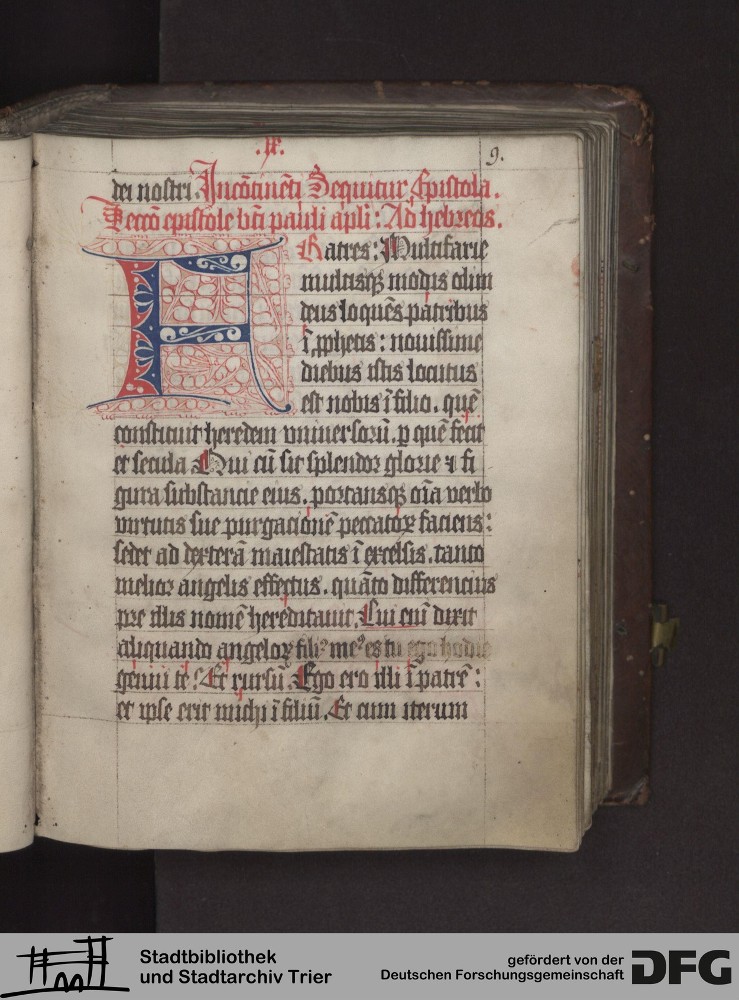 .ix. 9.
dei nostri. Incōtinēti Sequitur Epistola.
Leccō epistole bti pauli apli: Ad hebreos.
FRatres: Multifarie
multisqꝫ modis olim
deus loquēs patribus
ī ꝓphetis: nouissime
diebus istis locutus
est nobis ī filio. quē
constituit heredem vniuersorū. p quē fecit
et secula. Qui cū sit splendor glorie ⁊ fi
gura substancie eius. portansqꝫ oīa verbo
virtutis sue purgacionē peccatoꝝ faciens:
sedet ad dexterā maiestatis ī excelsis. tanto
melior angelis effectus. quāto differencius
pre illis nomē hereditauit. Cui eni dixit
aliquando angeloꝝ filiꝰ meꝰ es tu ego hodie
genui te? Et rursū. Ego ero illi ī patrē:
et ipse erit michi ī filiū. Et cum iterum
Stadtbibliothek
und Stadtarchiv Trier
gefördert von der
Deutschen Forschungsgemeinschaft
DFG